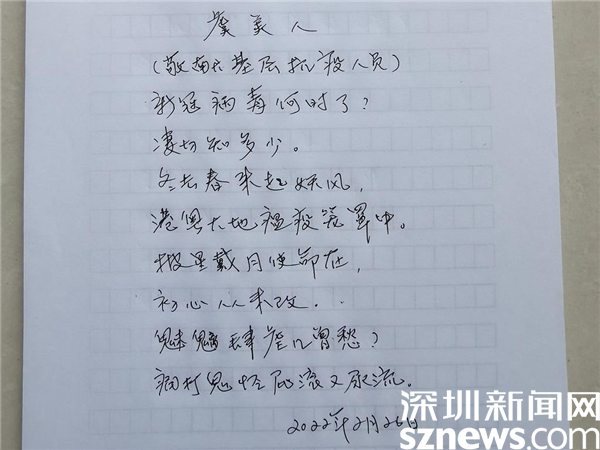 虞美人
(敬献基层抗疫人员)
新冠病毒何时了?
凄切知多少。
冬去春来起妖风,
港粤大地瘟疫笼罩中。
披星戴月使命在,
初心从未改..
魅魑肆虐几曾愁?
痛打鬼怪屁滚又尿流。
2022年2月26日
深圳新闻网
sznews.com